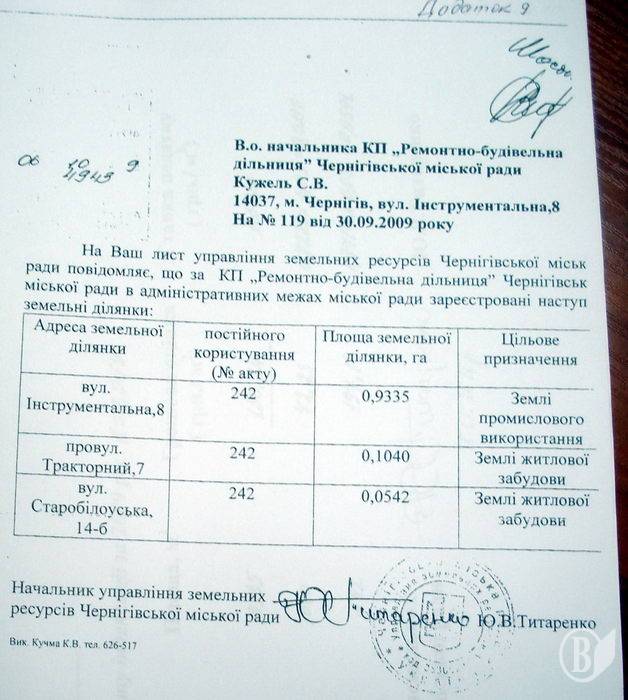 Додаток 9
06 10 9
4943
В.о. начальника КП „Ремонтно-будівельна
дільниця” Чернігівської міської ради
Кужель С.В.
14037, м. Чернігів, вул. Інструментальна,8
На № 119 від 30.09.2009 року
На Ваш лист управління земельних ресурсів Чернігівської міськ
ради повідомляє, що за КП „Ремонтно-будівельна дільниця” Чернігівськ
міської ради в адміністративних межах міської ради зареєстровані наступ
земельні ділянки:
Адреса земельної ділянки | постійного користування (№ акту) | Площа земельної ділянки, га | Цільове призначення
вул. Інструментальна,8 | 242 | 0,9335 | Землі промислового використання
провул. Тракторний,7 | 242 | 0,1040 | Землі житлової забудови
вул. Старобілоуська, 14-б | 242 | 0,0542 | Землі житлової забудови
Начальник управління земельних
ресурсів Чернігівської міської ради Титаренко Ю.В.Титаренко
Вик. Кучма К.В. тел. 626-517
В